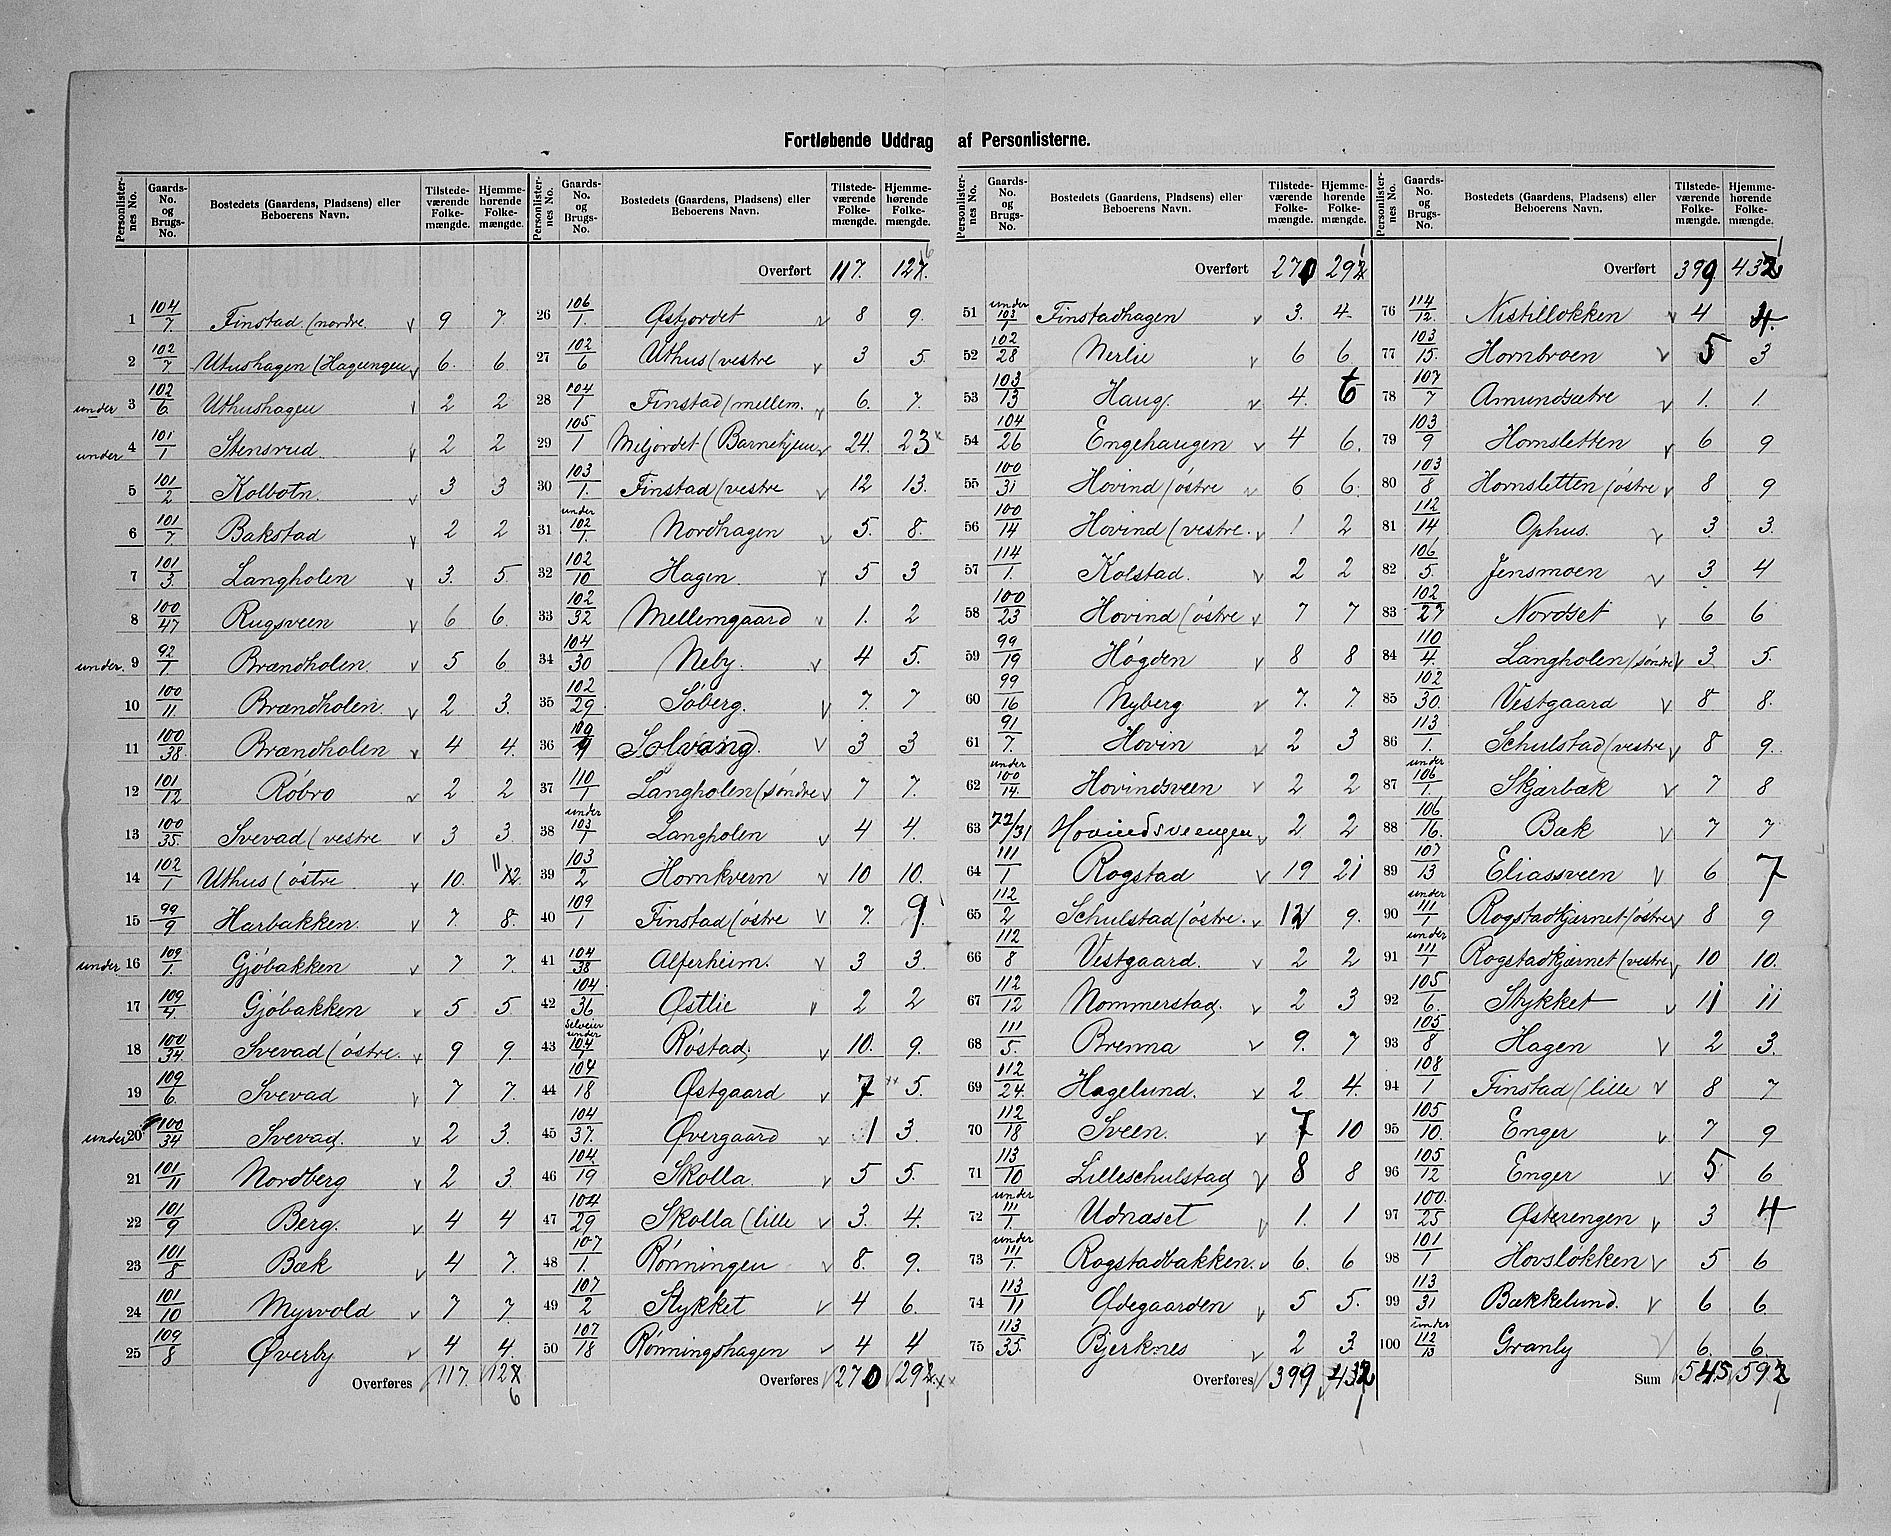 Fortløbende Uddrag af Personlisterne.
Personlister-nes No. Gaards-No. og Brugs-No. Bostedets (Gaardens, Pladsens) eller Beboerens Navn. Tilstede-værende Folke-mængde. Hjemme-hørende Folke-mængde.
1 104/7 Finstad (nordre v 9 7
2 102/7 Uthushagen (Hageengen v 6. 6.
under 3 102/6. Uthushagen v 2 2
under 4 101/1 Stensrud v 2 2
5 101/2 Kolbotn v 3 3
6 101/7 Bakstad v 2 2
7 101/3 Langholen v 3. 5.
8 100/47 Rugsveen v 6 6.
under 9 92/1 Brændholen v 5 6
10 100/11. Brændholen. v 2 3.
11 100/38. Brændholen v 4 4.
12 101/12 Röbro v 2 2
13 100/35. Svevad (vestre v 3 3.
14 102/1 Uthus (östre v 10. 11 12
15 99/9 Harbakken. v 7. 8.
under 16 109/1. Gjöbakken v 7 7.
17 109/4 Gjöbakken v 5 5
18 100/34. Svevad (östre. v 9 9.
19 109/6. Svevad v 7 7.
under 20 100/34 Svevad. v 2 3.
21 101/11 Nordberg v 2 3.
22 101/9 Berg. v 4 4
23 101/8 Bæk v 4 7.
24 101/10 Myrvold v 7 7.
25 109/8 Øverby v 4 4.
Overføres 117. 127 6
Personlister-nes No. Gaards-No. og Brugs-No. Bostedets (Gaardens, Pladsens) eller Beboerens Navn. Tilstede-værende Folke-mængde. Hjemme-hørende Folke-mængde.
Overført 117. 127. 6
26 106/1. Østjordet v 8 9.
27 102/6 Uthus (vestre v 3 5.
28 104/1 Finstad (mellem. v 6. 7.
29 105/1 Miljordet (Barnehjem v 24. 23 x
30 103/1. Finstad (vestre v 12 13.
31 under 102/1. Nordhagen v 5. 8.
32 102/10 Hagen v 5 3
33 102/32 Mellemgaard v 1. 2
34 104/30 Neby. v 4 5.
35 102/29 Söberg. v 7. 7
36 100/9 Solvang. v 3 3
37 110/1 Langholen (söndre v 7 7.
38 under 103/1 Langholen v 4 4.
39 103/2 Hornkvern v 10 10.
40 109/1 Finstad (östre v 7. 9.
41 104/38 Alferheim. v 3 3.
42 104/36 Østlie v 2 2
43 Selveier under 104/1 Röstad. v 10. 9.
44 104/18 Østgaard v 7 xx 5.
45 104/37. Øvergaard v 1 3.
46 104/19 Skolla. v 5 5.
47 104/29 Skolla (lille v 3. 4.
48 107/1. Rönningen v 8. 9.
49 107/2 Stykket v 4 6.
50 107/18 Rönningshagen v 4 4
Overføres 270 292 xx 1
Personlister-nes No. Gaards-No. og Brugs-No. Bostedets (Gaardens, Pladsens) eller Beboerens Navn. Tilstede-værende Folke-mængde. Hjemme-hørende Folke-mængde.
Overført 270 292 1
51 under 103/1 Finstadhagen v 3. 4.
52 102/28 Nerlie v 6 6.
53 103/13 Haug. v 4. 6
54 104/26 Engehaugen v 4 6.
55 100/31 Hovind (östre v 6 6.
56 100/14 Hovind (vestre. v 1 2
57 114/1. Kolstad. v 2 2
58 100/23 Hovind (östre v 7 7
59 99/19 Högden v 8 8
60 99/16 Nyberg v 7. 7.
61 91/7. Hovin v 2 3
62 under 100/14. Hovindsveen v 2 2
63 77/31 Hovindsveengen v 2 2
64 111/1 Rogstad v 19 21
65 112/2 Schulstad (östre. v 12 9.
66 112/8 Vestgaard. v 2 2
67 112/12 Nommerstad. v 2 3
68 111/5. Brenna v 9. 7
69 112/24. Hagelund. v 2 4.
70 112/18 Sveen. v 7 10
71 113/10 Lilleschulstad v 8 8
72 under 111/1. Udnæset v 1. 1
73 under 111/1. Rogstadbakken. v 6. 6
74 113/11 Ødegaarden v 5 5.
75 113/35. Bjerknes v 2 3.
Overføres 399 432 1
Personlister-nes No. Gaards-No. og Brugs-No. Bostedets (Gaardens, Pladsens) eller Beboerens Navn. Tilstede-værende Folke-mængde. Hjemme-hørende Folke-mængde.
Overført 399. 432 1
76 114/12. Nistillökken v 4 4.
77 103/15. Hornbroen v 5 3
78 107/7 Amundsætre v 1. 1.
79 103/9 Hornsletten v 6 9
80 103/8 Hornsletten (östre v 8 9
81 112/14 Ophus. v 3 3.
82 106/5. Jensmoen v 3 4
83 102/27 Nordset v 6 6
84 110/4. Langholen (söndre v 3. 5.
85 102/30. Vestgaard v 8 8.
86 113/1. Schulstad (vestre v 8 9.
87 under 106/1. Skjærbæk v 7 8
88 106/16. Bæk v 7 7
89 107/13 Eliassveen v 6 7
90 under 111/1 Rogstadkjærnet (östre v 8 9
91 under 111/1 Rogstadkjærnet (vestre v 10 10.
92 105/6. Stykket v 11 11
93 105/8 Hagen v 2 3.
94 108/1 Finstad (lille v 8 7
95 105/10. Enger v 7 9
96 105/12 Enger v 5 6
97 100./25 Østerengen v 3 4
98 101/1 Hovslökken v 5 6
99 113/31 Bækkelund. v 6 6
100 under 112/13 Granly v 6. 6.
Sum 545 592 1